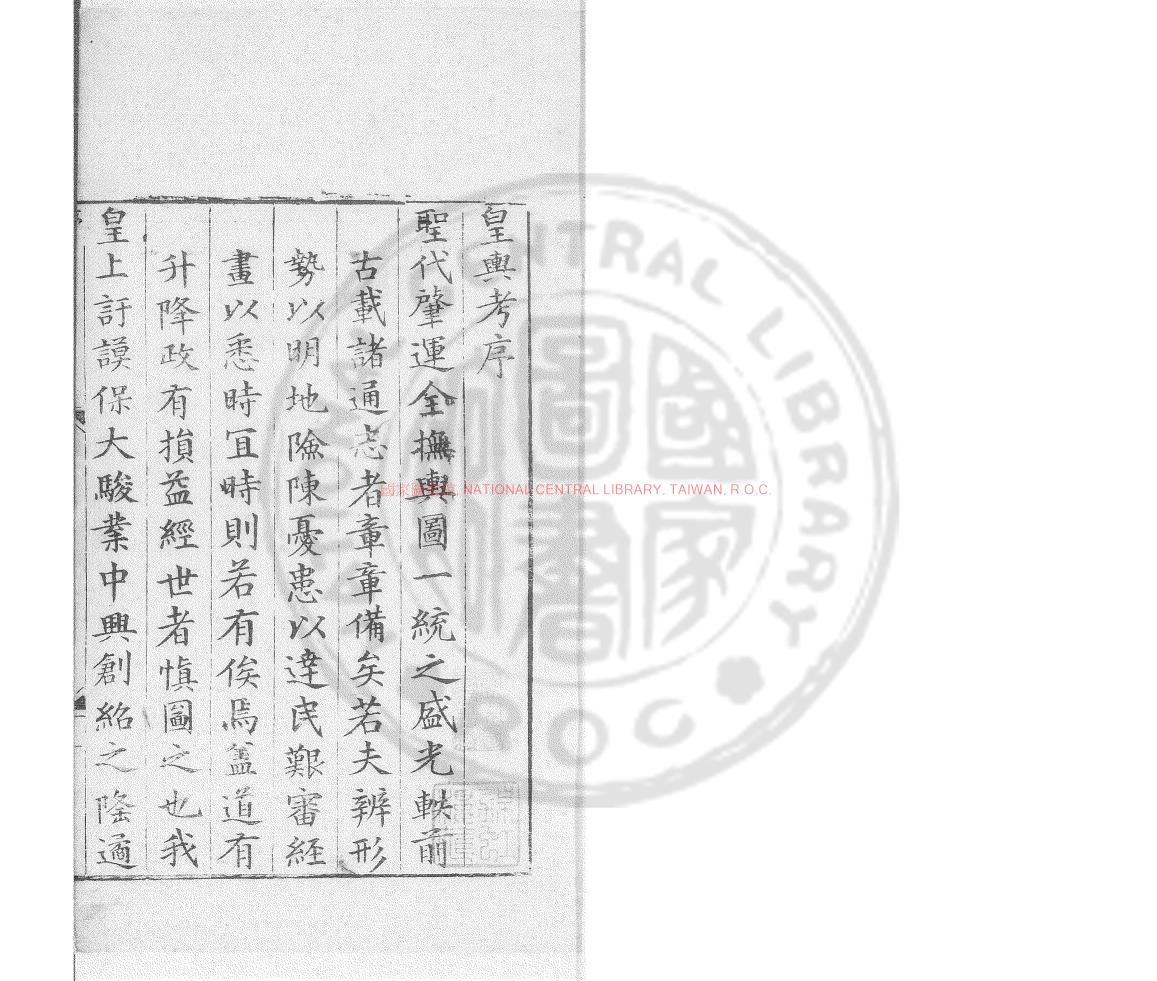 皇輿考序
聖代肇運全撫輿圖一統之盛光軼前
古載諸通志者章章備矣若夫辨形
勢以明地險陳憂患以達民艱審經
畫以悉時宜時則若有俟焉葢道有
升降政有損益經世者慎圖之也我
皇上訏謨保大駿業中興創紹之隆遹
國家圖書館, NATIONAL CENTRAL LIBRARY, TAIWAN, R.O.C.
CENTRAL LIBRARY
R O C
國家圖書